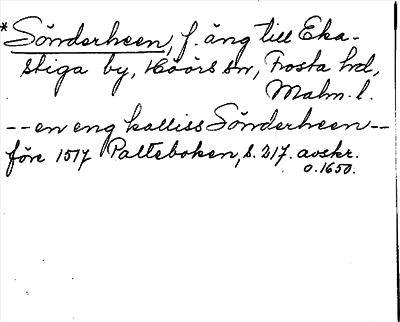 *Sönderheen, f. äng till Eka-
stiga by, Höörs sn, Frosta hd,
Malm. l.
--en eng kalliss Sönderheen--
före 1517 Palteboken, s. 217. avskr.
o. 1650.